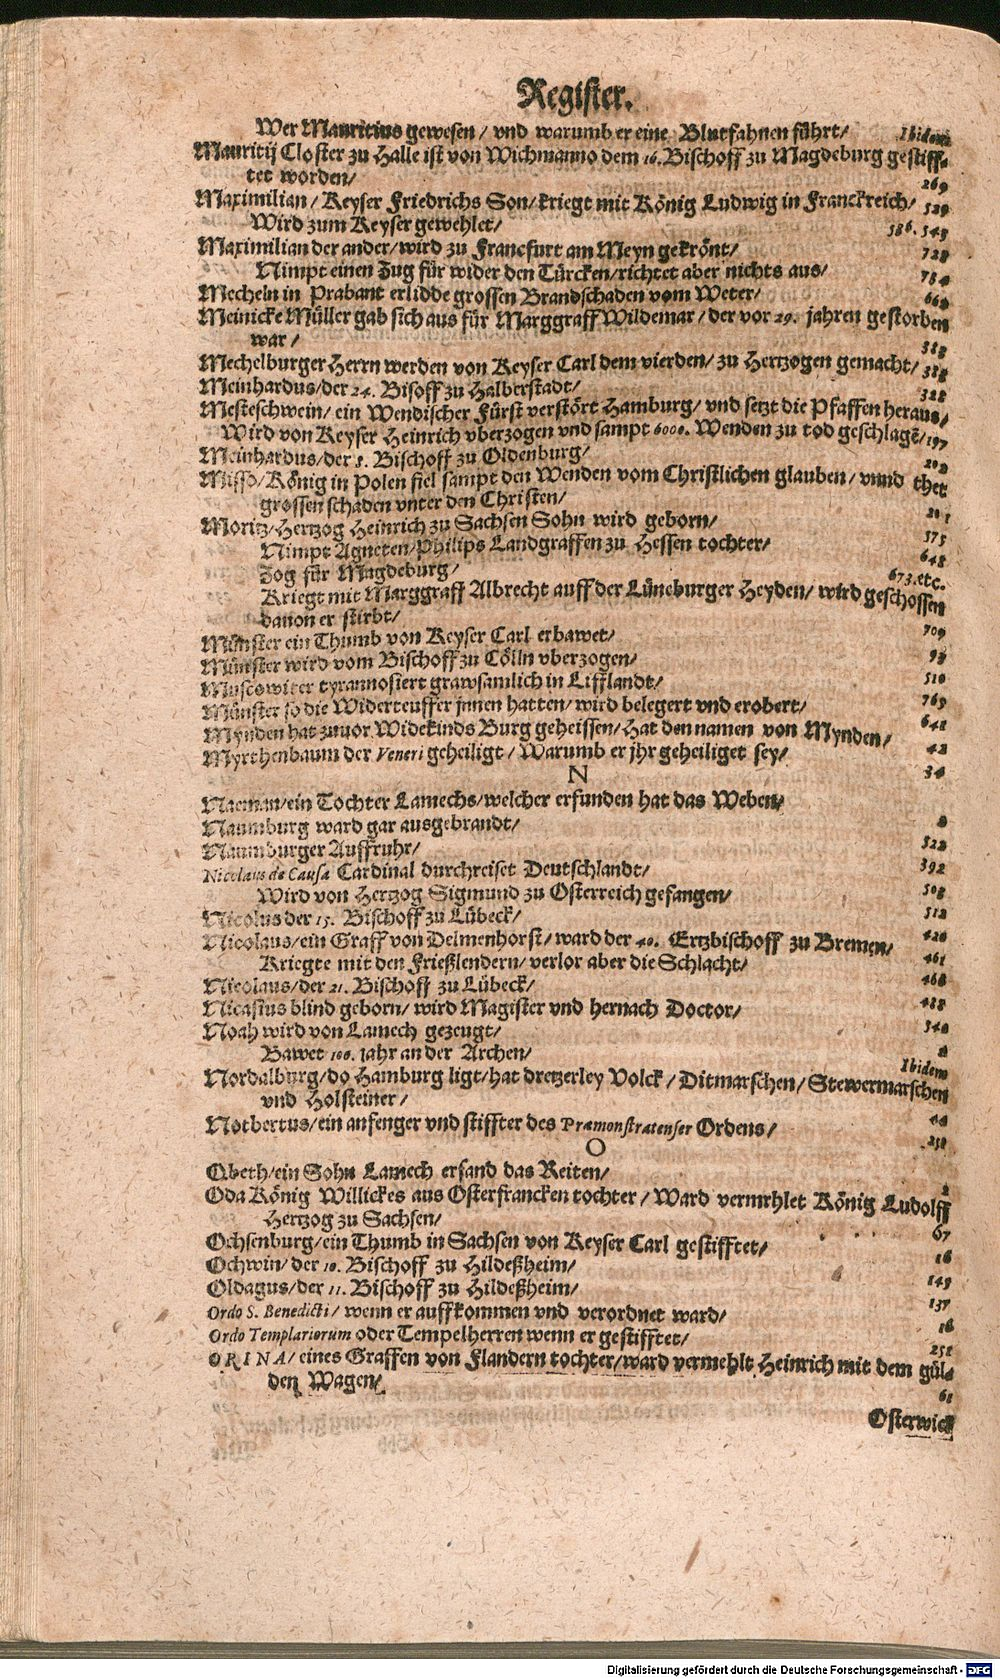 Register.
Wer Mauritius gewesen / vnd warumb er eine Blutfahnen führt / Ibidem
Mauritij Closter zu Halle ist von Wichmanno dem 16. Bischoff zu Magdeburg gestiff-
tet worden / 269
Maximilian / Keyser Friedrichs Son / kriegt mit König Ludwig in Franckreich / 529
Wird zum Keyser gewehlet / 586. 545
Maximilian der ander / wird zu Francfurt am Meyn gekrönt / 728
Nimpt einen Zug für wider den Türcken / richtet aber nichts aus / 784
Mecheln in Prabant erlidde grossen Brandschaden vom Weter / 662
Meinicke Müller gab sich aus für Marggraff Wildemar / der vor 29. jahren gestorben
war / 388
Mechelburger Herrn werden von Keyser Carl dem vierden / zu Hertzogen gemacht / 388
Meinhardus / der 24. Bisoff zu Halberstadt / 328
Mesteschwein / ein Wendischer Fürst verstört Hamburg / vnd setzt die Pfaffen heraus /
Wird von Keyser Heinrich vberzogen vnd sampt 6000. Wenden zu tod geschlagẽ / 197
Meinhardus / der 8. Bischoff zu Oldenburg / 202
Misso / König in Polen fiel sampt den Wenden vom Christlichen glauben / vnnd thet
grossen schaden vnter den Christen / 201
Moritz / Hertzog Heinrich zu Sachsen Sohn wird geborn / 575
Nimpt Agneten / Philips Landgraffen zu Hessen tochter / 648
Zog für Magdeburg / 673. etc.
Kriegt mit Marggraff Albrecht auff der Lüneburger Heyden / wird geschossen
dauon er stirbt / 709
Münster ein Thumb von Keyser Carl erbawet / 98
Münster wird vom Bischoff zu Cölln vberzogen / 510
Muscowiter tyrannosiert grawsamlich in Lifflandt / 769
Münster so die Widerteuffer jnnen hatten / wird belegert vnd erobert / 641
Mynden hat zuuor Widekinds Burg geheissen / Hat den namen von Mynden / 42
Myrthenbaum der Veneri geheiligt / Warumb er jhr geheiliget sey / 34
N
Naeman / ein Tochter Lamechs / welcher erfunden hat das Weben / 2
Naumburg ward gar ausgebrandt / 522
Naumburger Auffruhr / 392
Nicolaus de Causa Cardinal durchreiset Deutschlandt / 508
Wird von Hertzog Sigmund zu Osterreich gefangen / 512
Nicolus der 15. Bischoff zu Lübeck / 420
Nicolaus / ein Graff von Delmenhorst / ward der 40. Ertzbischoff zu Bremen / 461
Kriegte mit den Frießlendern / verlor aber die Schlacht / 468
Nicolaus / der 21. Bischoff zu Lübeck / 488
Nicasius blind geborn / wird Magister vnd hernach Doctor / 540
Noah wird von Lamech gezeugt / 2
Bawet 100. jahr an der Archen / Ibidem
Nordalbyrg / do Hamburg ligt / hat dretzerley Volck / Ditmarschen / Stewermarschen
vnd Holsteiner / 44
Notbertus / ein anfenger vnd stiffter des Præmonstratenser Ordens / 251
O
Obeth / ein Sohn Lamech erfand das Reiten / 2
Oda König Willickes aus Osterfrancken tochter / Ward vermehlet König Ludolff
Hertzog zu Sachsen / 67
Ochsenburg / ein Thumb in Sachsen von Keyser Carl gestifftet / 16
Ochwin / der 10. Bischoff zu Hildeßheim / 149
Oldagus / der 11. Bischoff zu Hildeßheim / 137
Ordo S. Benedicti / wenn er auffkommen vnd verordnet ward / 16
Ordo Templariorum oder Tempelherren wenn er gestifftet / 252
ORINA / eines Graffen von Flandern tochter / ward vermehlt Heinrich mit dem gül-
den Wagen / 61
Osterwick
Digitalisierung gefördert durch die Deutsche Forschungsgemeinschaft - DFG